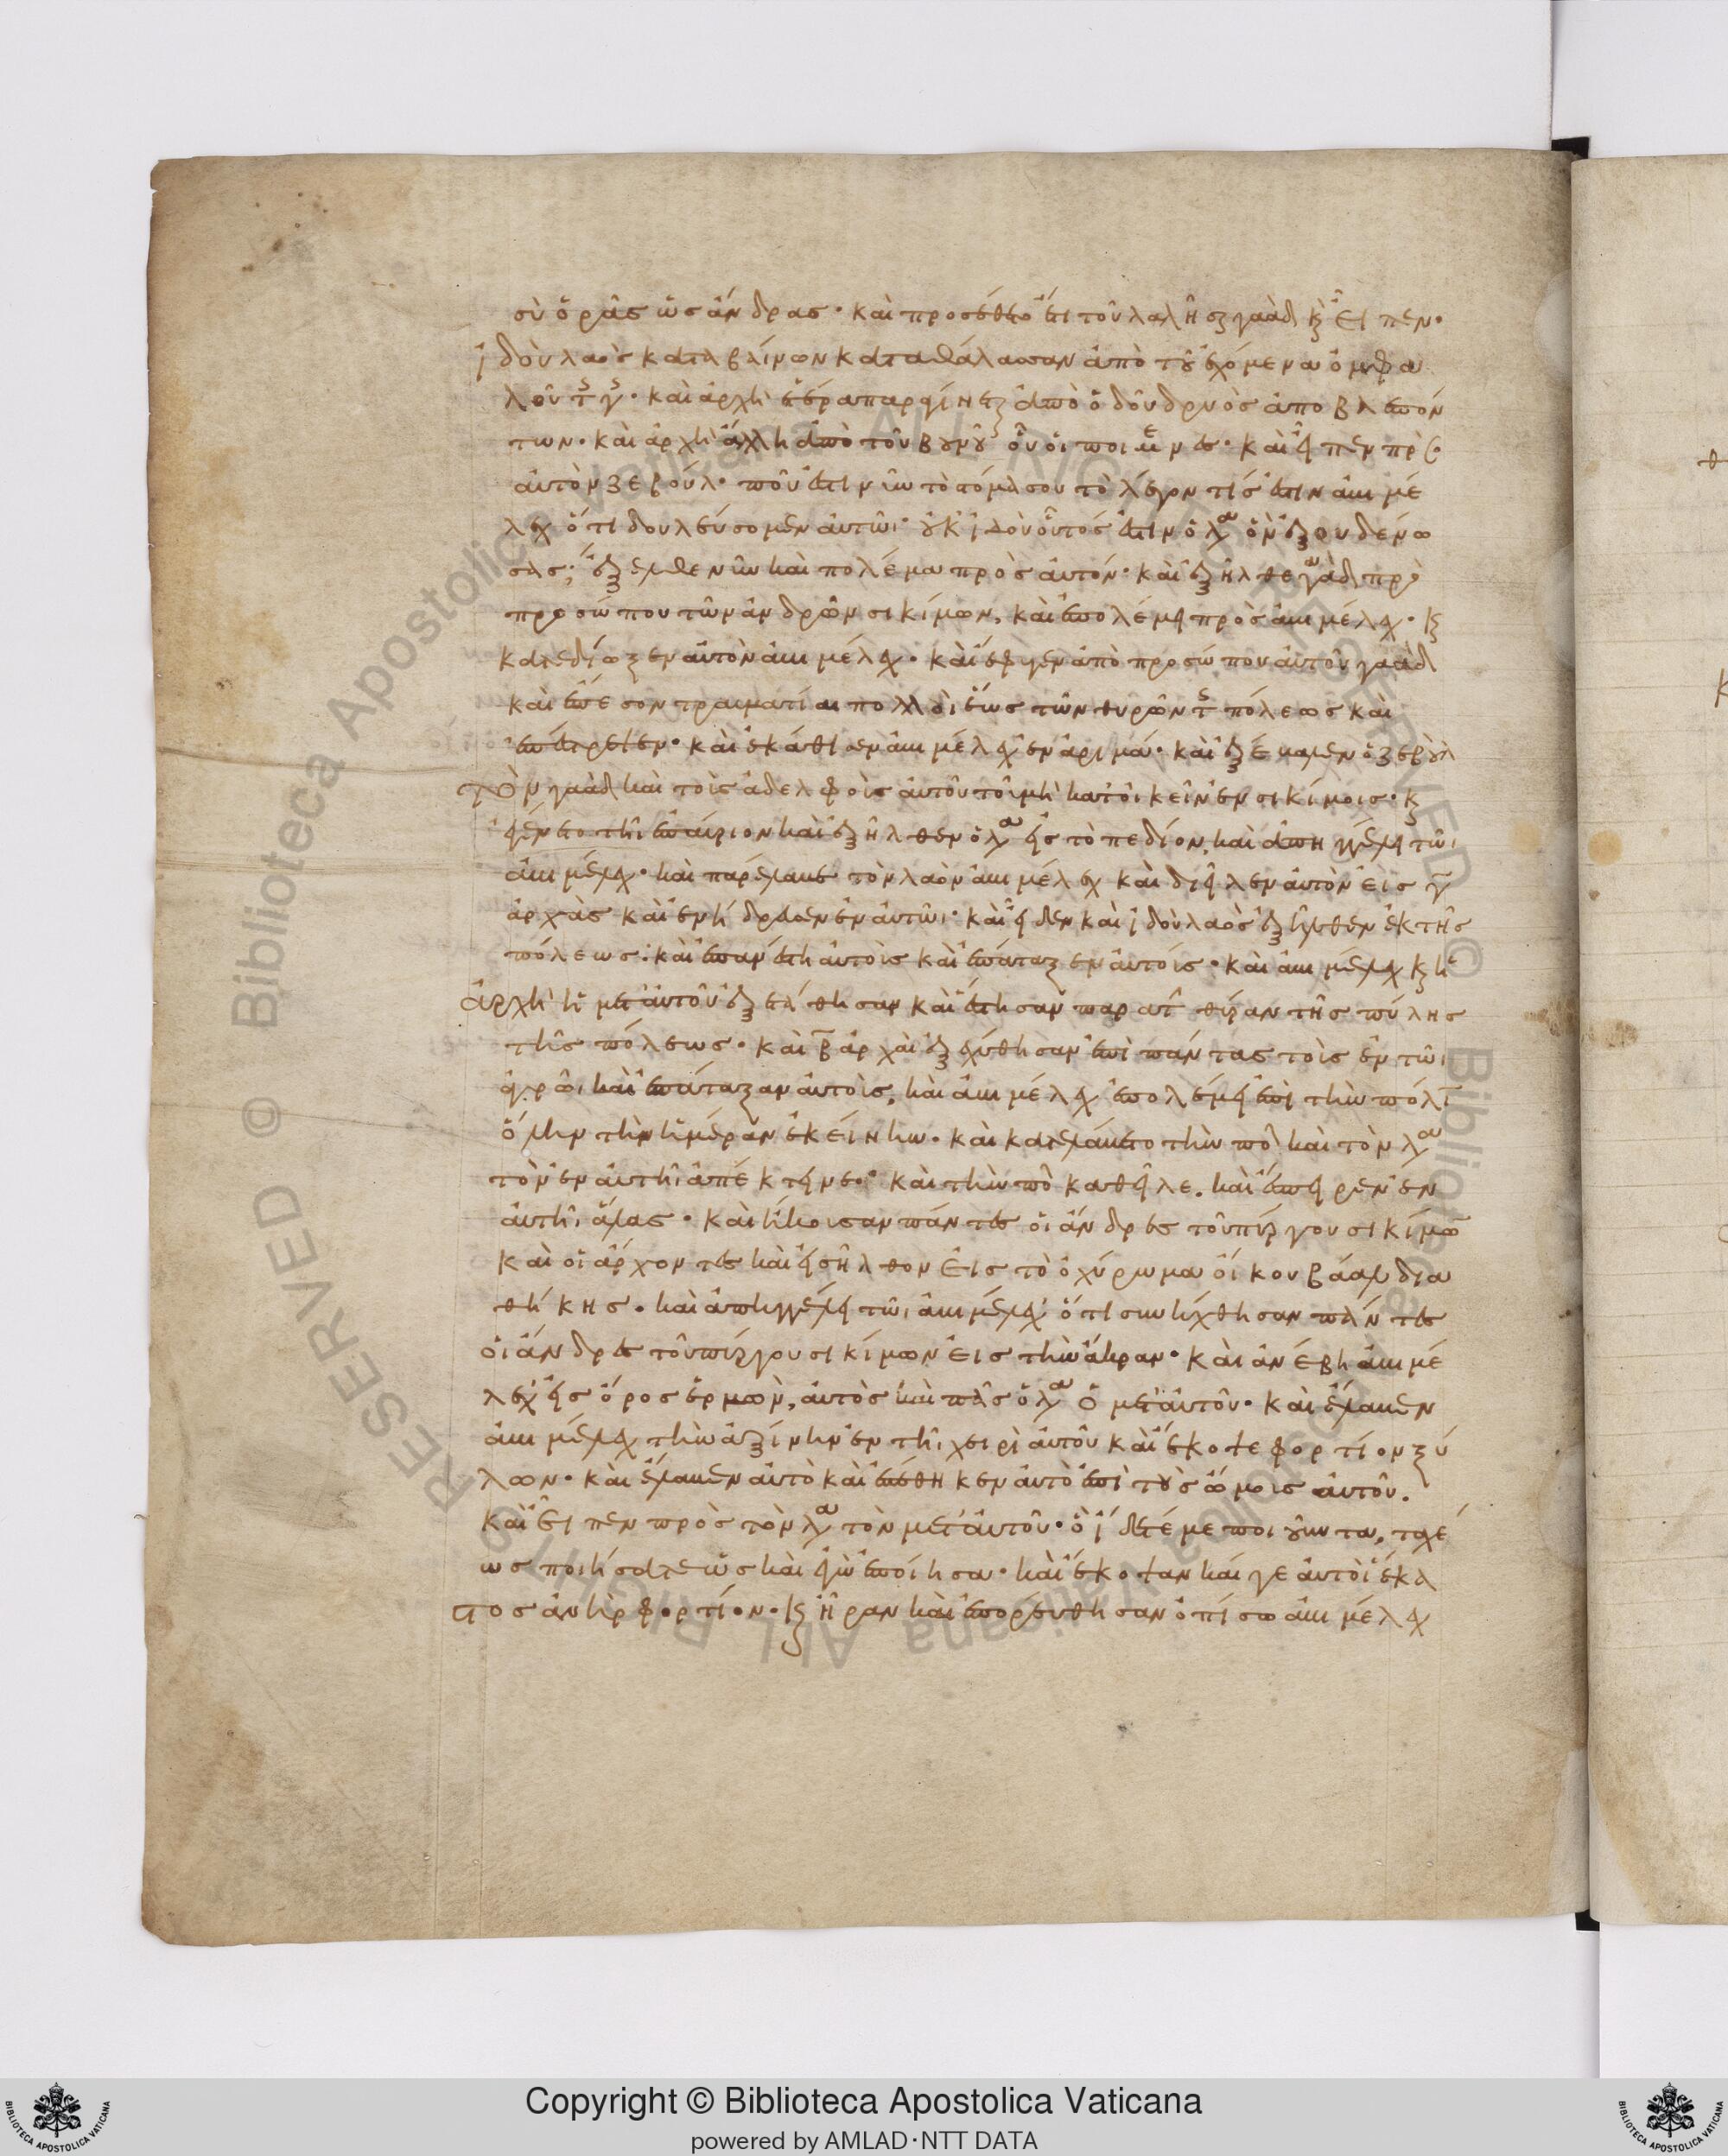 σὺ ὁρᾶς ὡς ἄνδρας· καὶ προσέθετο ἔτι τοῦ λαλῆσαι γαὰδ καὶ εἶπεν·
ἰδοὺ λαὸς καταβαίνων κατα θάλασσαν ἀπὸ τοῦ ἐχόμενα ὀμφα
λοῦ τῆς γῆς· καὶ ἀρχὴ ἑτέρα παραγίνεται ἀπὸ ὁδοῦ δρυὸς ἀποβλεπόν
των· καὶ ἀρχὴ ἄλλη ἀπὸ τοῦ βουνοῦ οὗ οἱ ποιμένες· καὶ εἶπεν πρὸς
ἀυτὸν ζεβούλ· ποῦ ἐστιν νῦν τὸ στόμα σου τὸ λέγον τίς ἐστιν ἀβιμέ
λεχ ὅτι δουλεύσομεν ἀυτῶι· οὐκ ἰδοὺ οὗτός ἐστιν ὁ λαὸς ὃν ἐξουδένω
σας; ἔξελθε νῦν καὶ πολέμει πρὸς ἀυτόν· καὶ ἐξῆλθε γαὰδ πρὸ
προσώπου τῶν ἀνδρῶν σικίμων, καὶ ἐπολέμει πρὸς ἀβιμέλεχ· καὶ
κατεδίωξεν ἀυτὸν ἀβιμέλεχ· καὶ ἔφυγεν ἀπὸ προσώπου ἀυτοῦ γαὰδ
καὶ ἔπεσον τραυματίαι πολλοὶ ἕως τῶν θυρῶν τῆς πόλεως καὶ
ἐπέστρεψεν· καὶ ἐκάθισεν ἀβιμέλεχ ἐν ἀριμά· καὶ ἐξέβαλεν ὁ ζεβοὺλ
τὸν γαὰδ καὶ τοὺς ἀδελφοὺς ἀυτοῦ τοῦ μὴ κατοικεῖν ἐν σικίμοις· καὶ
ἐγένετο τῆι ἐπαύριον καὶ ἐξῆλθεν ὁ λαὸς εἰς τὸ πεδίον, καὶ ἀπηγγέλει τῶι
ἀβιμέλεχ· καὶ παρέλαβε τὸν λαὸν ἀβιμέλεχ καὶ διεῖλεν ἀυτὸν εἰς γ
ἀρχὰς καὶ ἐνήδρασεν ἐν ἀυτῶι· καὶ εἶδεν καὶ ἰδοὺ λαὸς ἐξῆλθεν ἐκ τῆς
πόλεως· καὶ ἐπανέστη ἀυτοὶς καὶ ἐπάταξεν ἀυτοὺς· καὶ ἀβιμέλεχ καὶ ἡ
ἀρχὴ ἡ μετ' ἀυτοῦ ἐξετάθησαν καὶ ἔστησαν παρα τὴν θύραν τῆς πύλης
τῆς πόλεως· καὶ β ἀρχαὶ ἐξεχύθησαν ἐπὶ πάντας τοὺς ἐν τῶι
ἀγρῶι καὶ ἐπάταξαν ἀυτοὺς, καὶ ἀβιμέλεχ ἐπολέμει ἐπὶ τὴν πόλιν
ὅλην τὴν ἡμέραν ἐκείνην· καὶ κατελάβετο τὴν πόλ καὶ τὸν λαὸν
τὸν ἐν ἀυτῆι ἀπέκτεινε· καὶ τὴν πόλ καθεῖλε, καὶ ἔσπειρεν ἐν
ἀυτῆι ἅλας· καὶ ἤκουσαν πάντες οἱ ἄνδρες τοῦ πύργου σικίμων
καὶ οἱ ἄρχοντες καὶ εἰσῆλθον εἰς τὸ ὀχύρωμα οἴκου βάαλ δια
θήκης· καὶ ἀπηγγέλει τῶι ἀβιμέλεχ ὅτι συνήχθησαν πάντες
οἱ ἄνδρες τοῦ πύργου σικίμων εἰς τὴν ἄκραν· καὶ ἀνέβη ἀβιμέ
λεχ εἰς ὄρος ἑρμων, ἀυτὸς καὶ πᾶς ὁ λαὸς ὁ μετ' ἀυτοῦ· καὶ ἔλαβεν
ἀβιμέλεχ τὴν ἀξίνην ἐν τῆι χειρὶ ἀυτοῦ καὶ ἔκοψε φορτίον ξύ
λων· καὶ ἔλαβεν ἀυτὸ καὶ ἐπέθηκεν ἀυτὸ ἐπὶ τοὺς ὤμους ἀυτοῦ.
καὶ εἶπεν πρὸς τὸν λαὸν τὸν μετ' ἀυτοῦ· ὃ ἴδετέ με ποιοῦντα, ταχέ
ως ποιήσατε ὡς καὶ ἐγὼ ἐποίησα· καὶ ἔκοψαν καί γε ἀυτοὶ ἕκα
στος ἀνὴρ φορτίον· καὶ ἦραν καὶ ἐπορεύθησαν ὀπίσω ἀβιμέλεχ
© Biblioteca Apostolica Vaticana ALL RIGHTS RESERVED
Copyright © Biblioteca Apostolica Vaticana
powered by AMLAD·NTT DATA
BIBLIOTECA APOSTOLICA VATICANA
BIBLIOTECA APOSTOLICA VATICANA